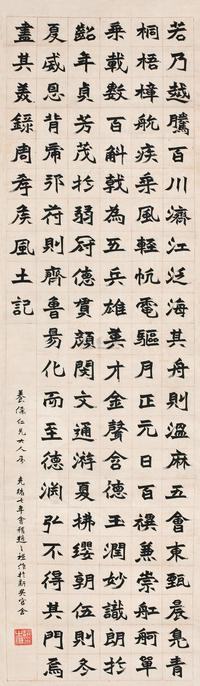 若乃越騰百川濟江泛海其舟則溫麻五會東甄晨鳧青
桐梧樟航疾乘風輕帆電驅月正元日百禩兼崇舡舸單
乘載數百斛戟為五兵雄英才金聲含德玉潤妙識朗於
齠年貞芳茂於弱冠德貫顏閔文通游夏拂纓朝伍則冬
夏威恩背則齊魯易化而至德淵弘不得其門焉
盡其美錄周孝侯風土記
仁兄大人屬 光緒七年會稽趙之謙作於新吳官舍